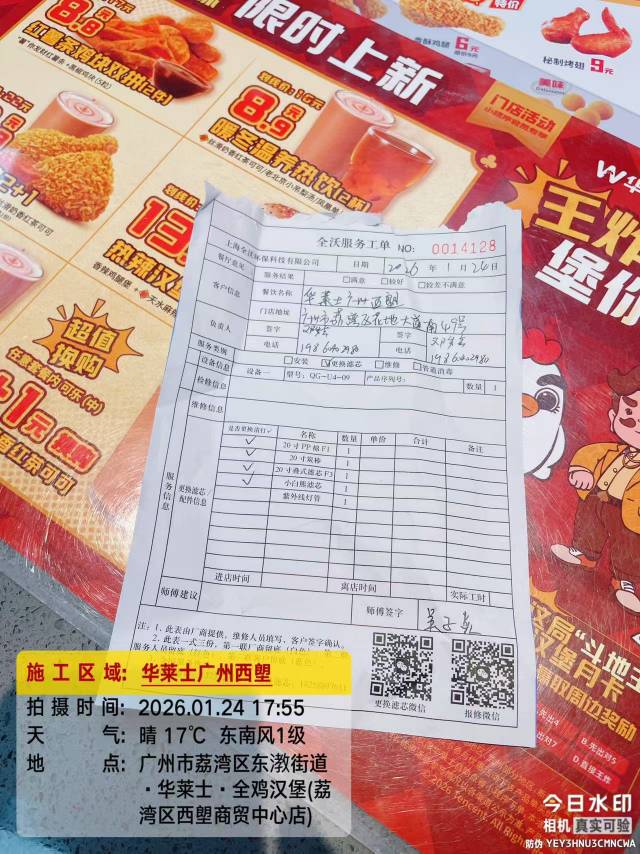 8.8元
红薯条鸡块双拼(2件)
限时上新
特价
香酥鸡腿 6元
秘制烤翅 9元
美味
门店活动
到底价:16元
8.9元
暖冬温养热饮(2杯)
2+1
到底价
13
热辣汉
香辣鸡腿堡
超值
换购
任意套餐内 可乐(中)
+1元 换购
香红茶可可
王炸
堡你
全沃服务工单 NO: 0014128
上海全沃环保科技有限公司 日期 2026 年 1 月 24 日
餐厅意见 服务结果 □满意 □较好 □较差不满意
客户信息 餐饮名称 华莱士广州西塱
门店地址 广州市荔湾区花地大道南49号
负责人 签字 签字
电话 电话
服务类别 □安装 ☑更换滤芯 □维修 □管道消毒
设备信息 设备一 型号: QG-U4-09 产品序列号: 数量 1
检修信息
维修信息
服务信息 更换滤芯/配件信息
是否更换请打✓ 名称 数量 单价 合计 备注
✓ 20寸PP棉F1 1
✓ 20寸炭棒 1
✓ 20寸叠式滤芯F3 1
✓ 小白熊滤芯 1
紫外线灯管 1
进店时间 离店时间 实际工时
师傅建议 师傅签字
注: 1、此表由厂商提供, 维修人员填写、客户签字确认。
2、此表一式三份, 第一联厂商留底(白色)、第
更换滤芯微信 报修微信
施工区域: 华莱士广州西塱
拍摄时间: 2026.01.24 17:55
天 气: 晴 17℃ 东南风1级
地 点: 广州市荔湾区东漖街道
·华莱士·全鸡汉堡(荔
湾区西塱商贸中心店)
"斗地主
汉堡月卡
赢取周边奖励
B.先出对5
D.直接王炸
今日水印
相机 真实可验
防伪 YEY3HNU3CMNCWA